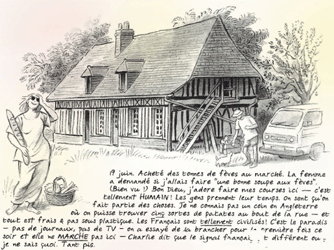 19 juin. Acheté des tonnes de fèves au marché. La femme
a demandé si j'allais faire "une bonne soupe aux fèves".
(Bien vu !) Bon Dieu, j'adore faire mes courses ici — c'est
tellement HUMAIN! Les gens prennent leur temps. On sent qu'on
fait partie des choses. Je ne connais pas un coin en Angleterre
où on puisse trouver cinq sortes de patates au bout de la rue — et
tout est frais & pas sous plastique. Les Français sont tellement civilisés! C'est le paradis
- pas de journaux, pas de TV - on a essayé de la brancher pour l- première fois ce
soir et elle ne MARCHE pas ici - Charlie dit que le signal français, , t différent ou
je ne sais quoi. Tant pis.